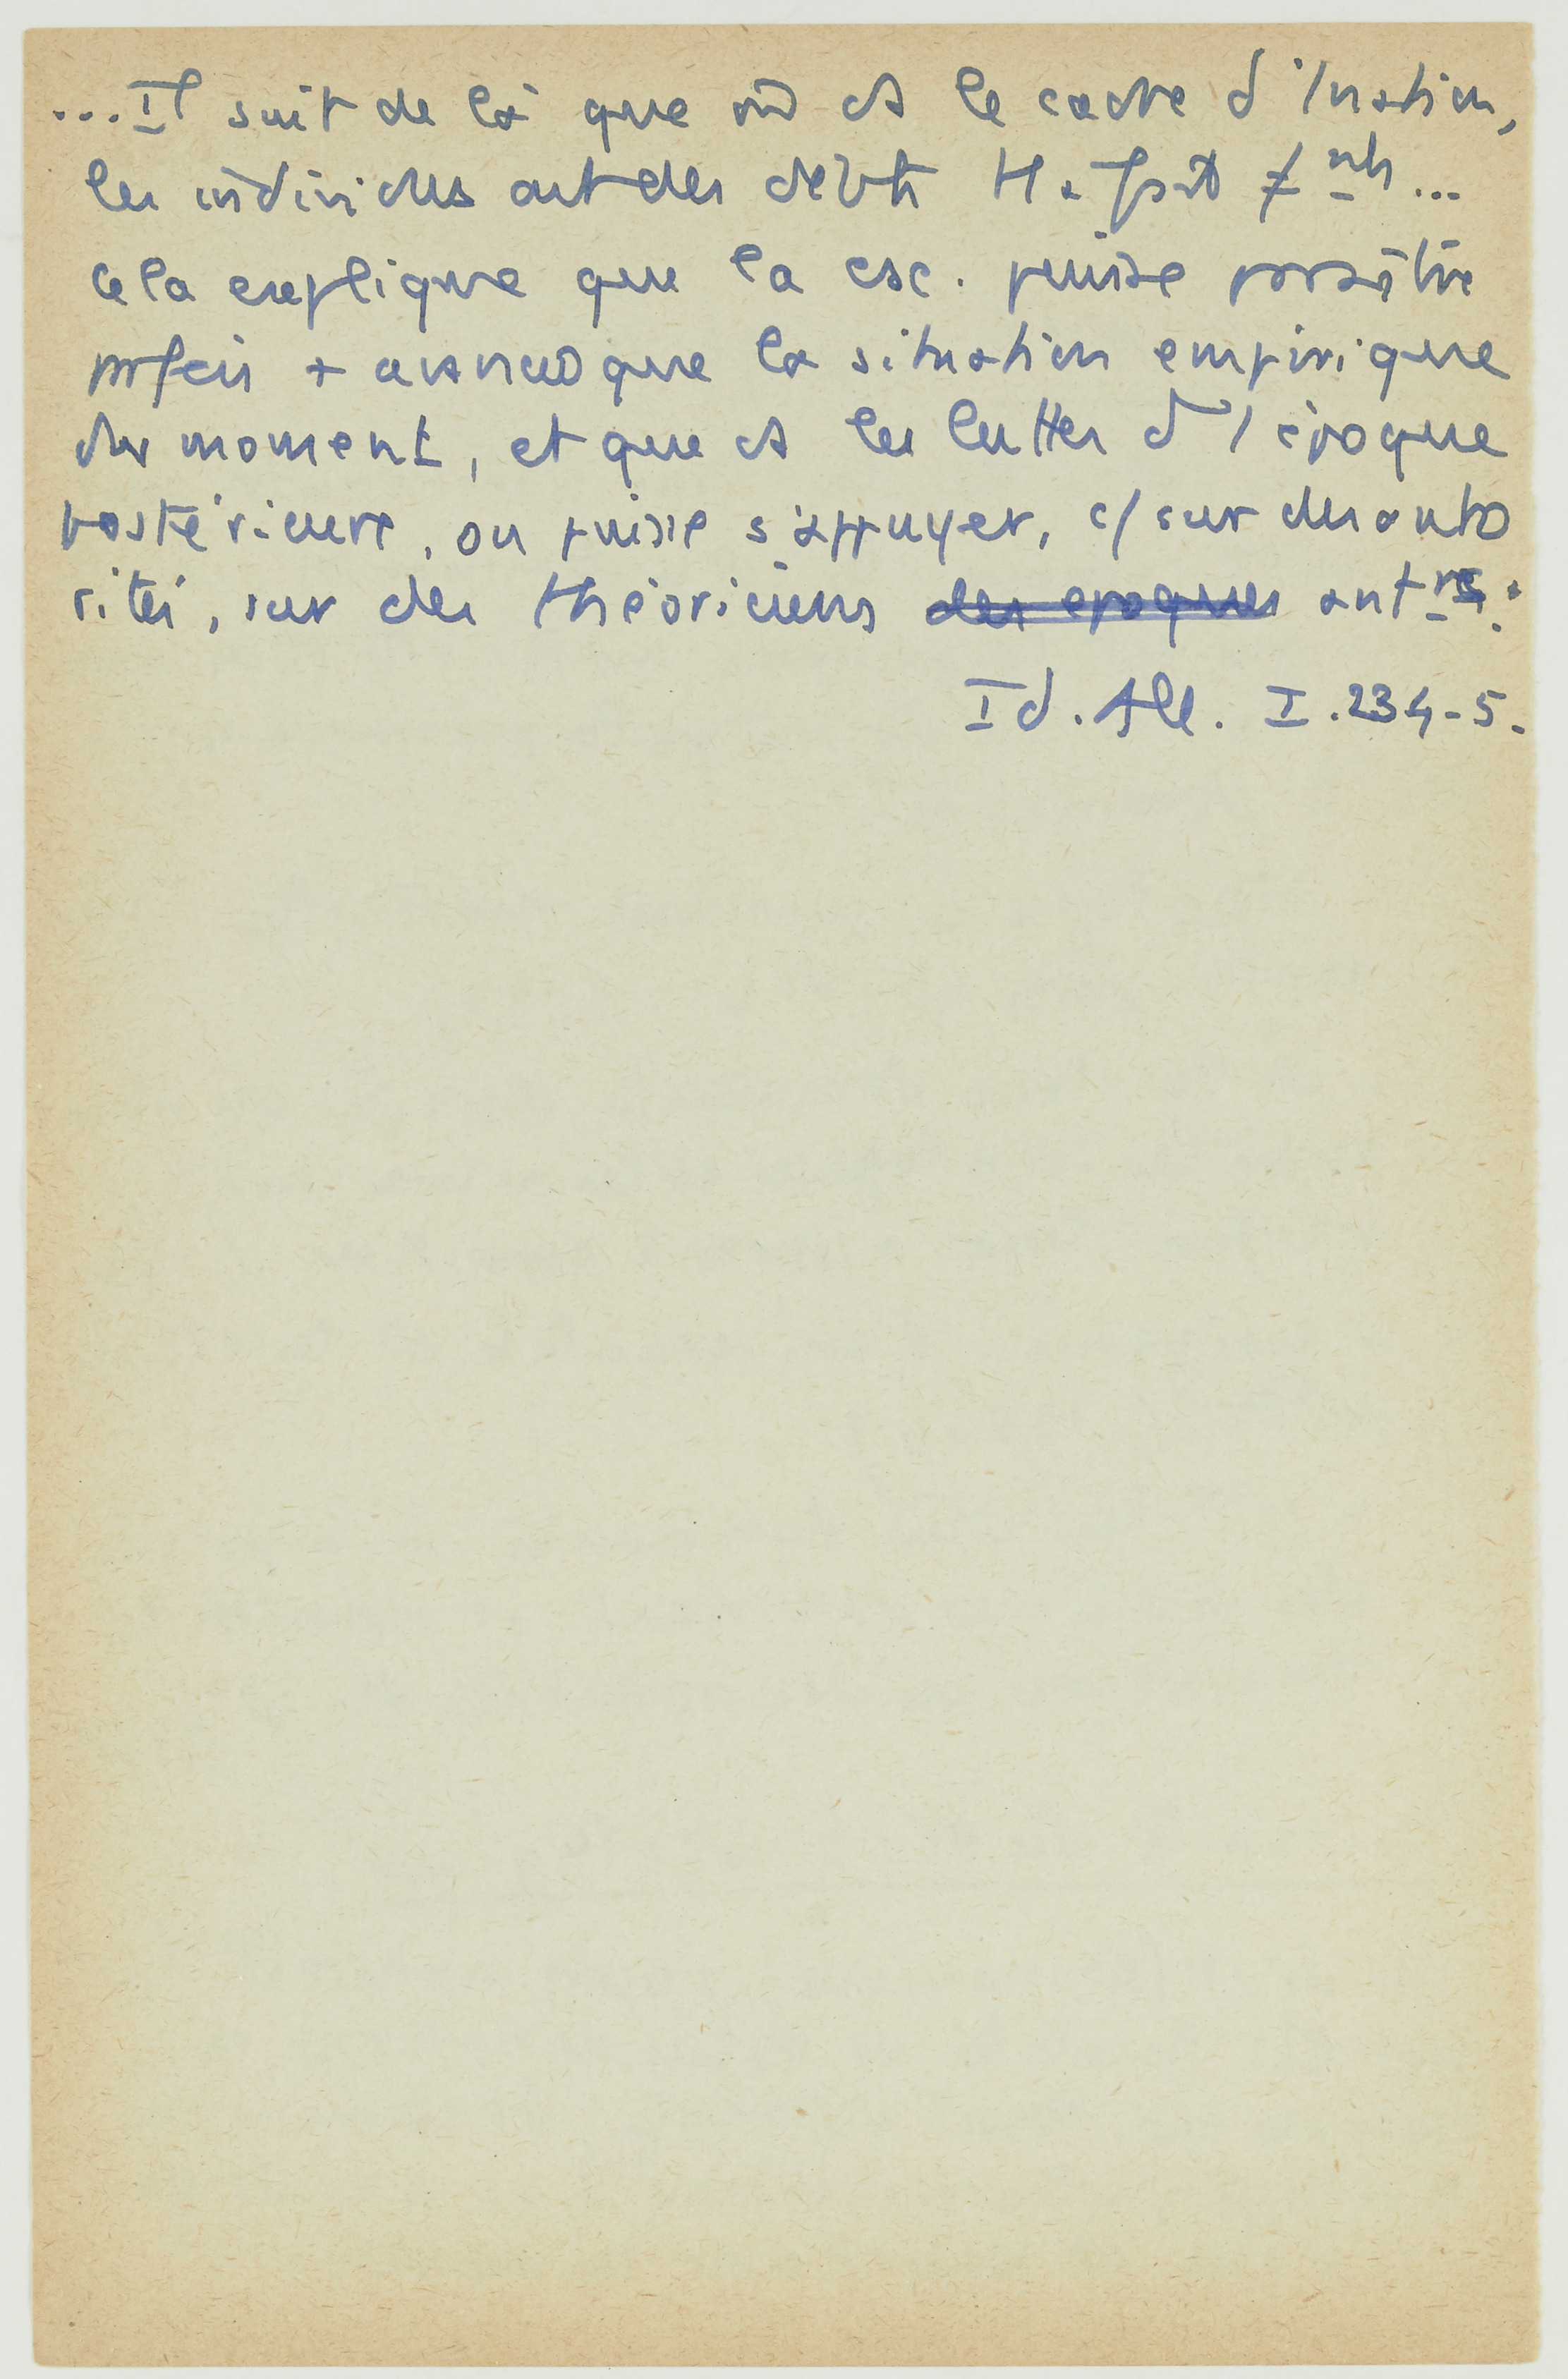 ...Il suit de là que m̂ ds le cadre d'1 nation,
les individus ont des dévts tt à fait ≠nts...
Cela explique que la csc. puisse paraître
parfois + avancée que la situation empirique
du moment, et que ds les luttes d'1 époque
postérieure, on puisse s'appuyer, c/ sur des auto
rités, sur des théoriciens des epoques antres.
Id. All. I. 234-5.